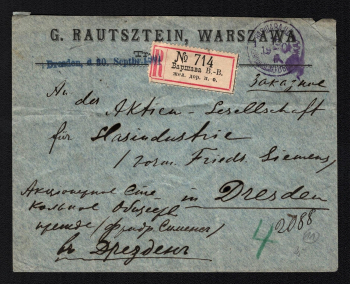 G. RAUTSZTEIN, WARSZAWA
Dresden, d. 30. Septbr.
№ 714
Варшава В.-В.
жел. дор. п. о.
Заказное
An die Aktien-Gesellschaft
für Glasindustrie
/ vorm. Friedr. Siemens /
in Dresden
Акционерное Сте
кольное Общест
прежде / Фридр. Сименс /
въ Дрезденъ
4
2088